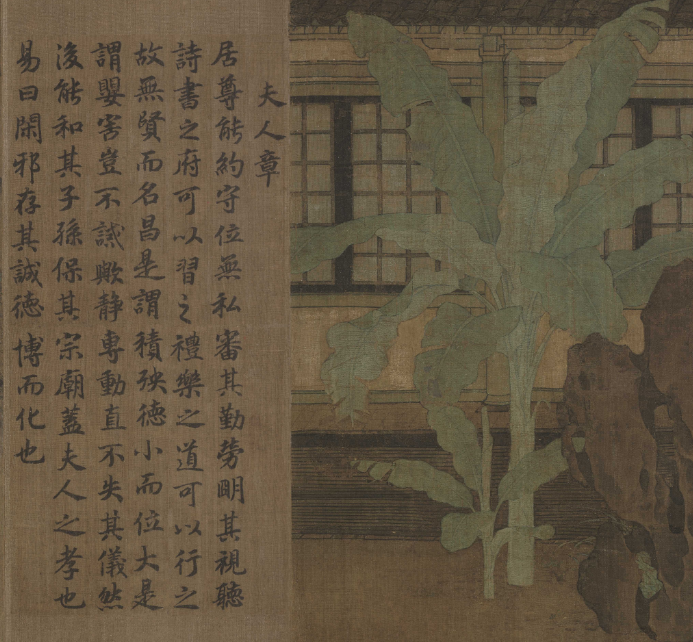 夫人章
居尊能約守位無私審其勤勞眀其視聽
詩書之府可以習之禮樂之道可以行之
故無賢而名昌是謂積殃德小而位大是
謂嬰害豈不誡歟静專動直不失其儀然
後能和其子孫保其宗廟蓋夫人之孝也
易曰閑邪存其誠德博而化也